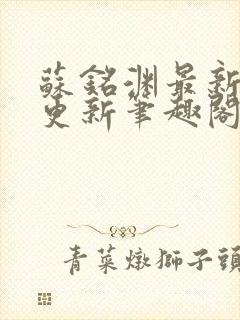 蘇銘淵最新
更新筆趣閣
青菜燉獅子頭